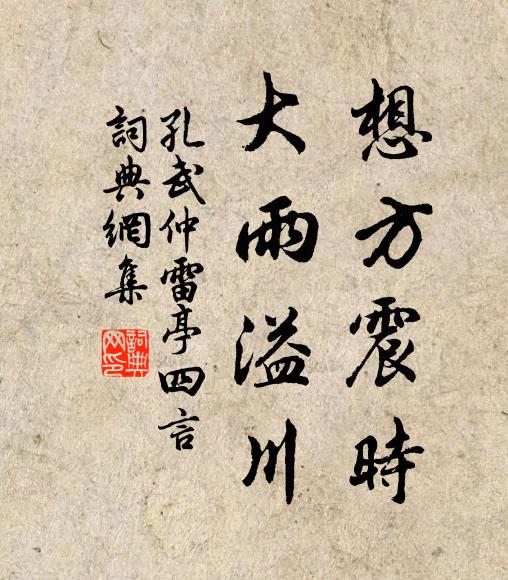 想方震時
大雨溢川
孔武仲雷亭四言
詞典網集
詞典
网印